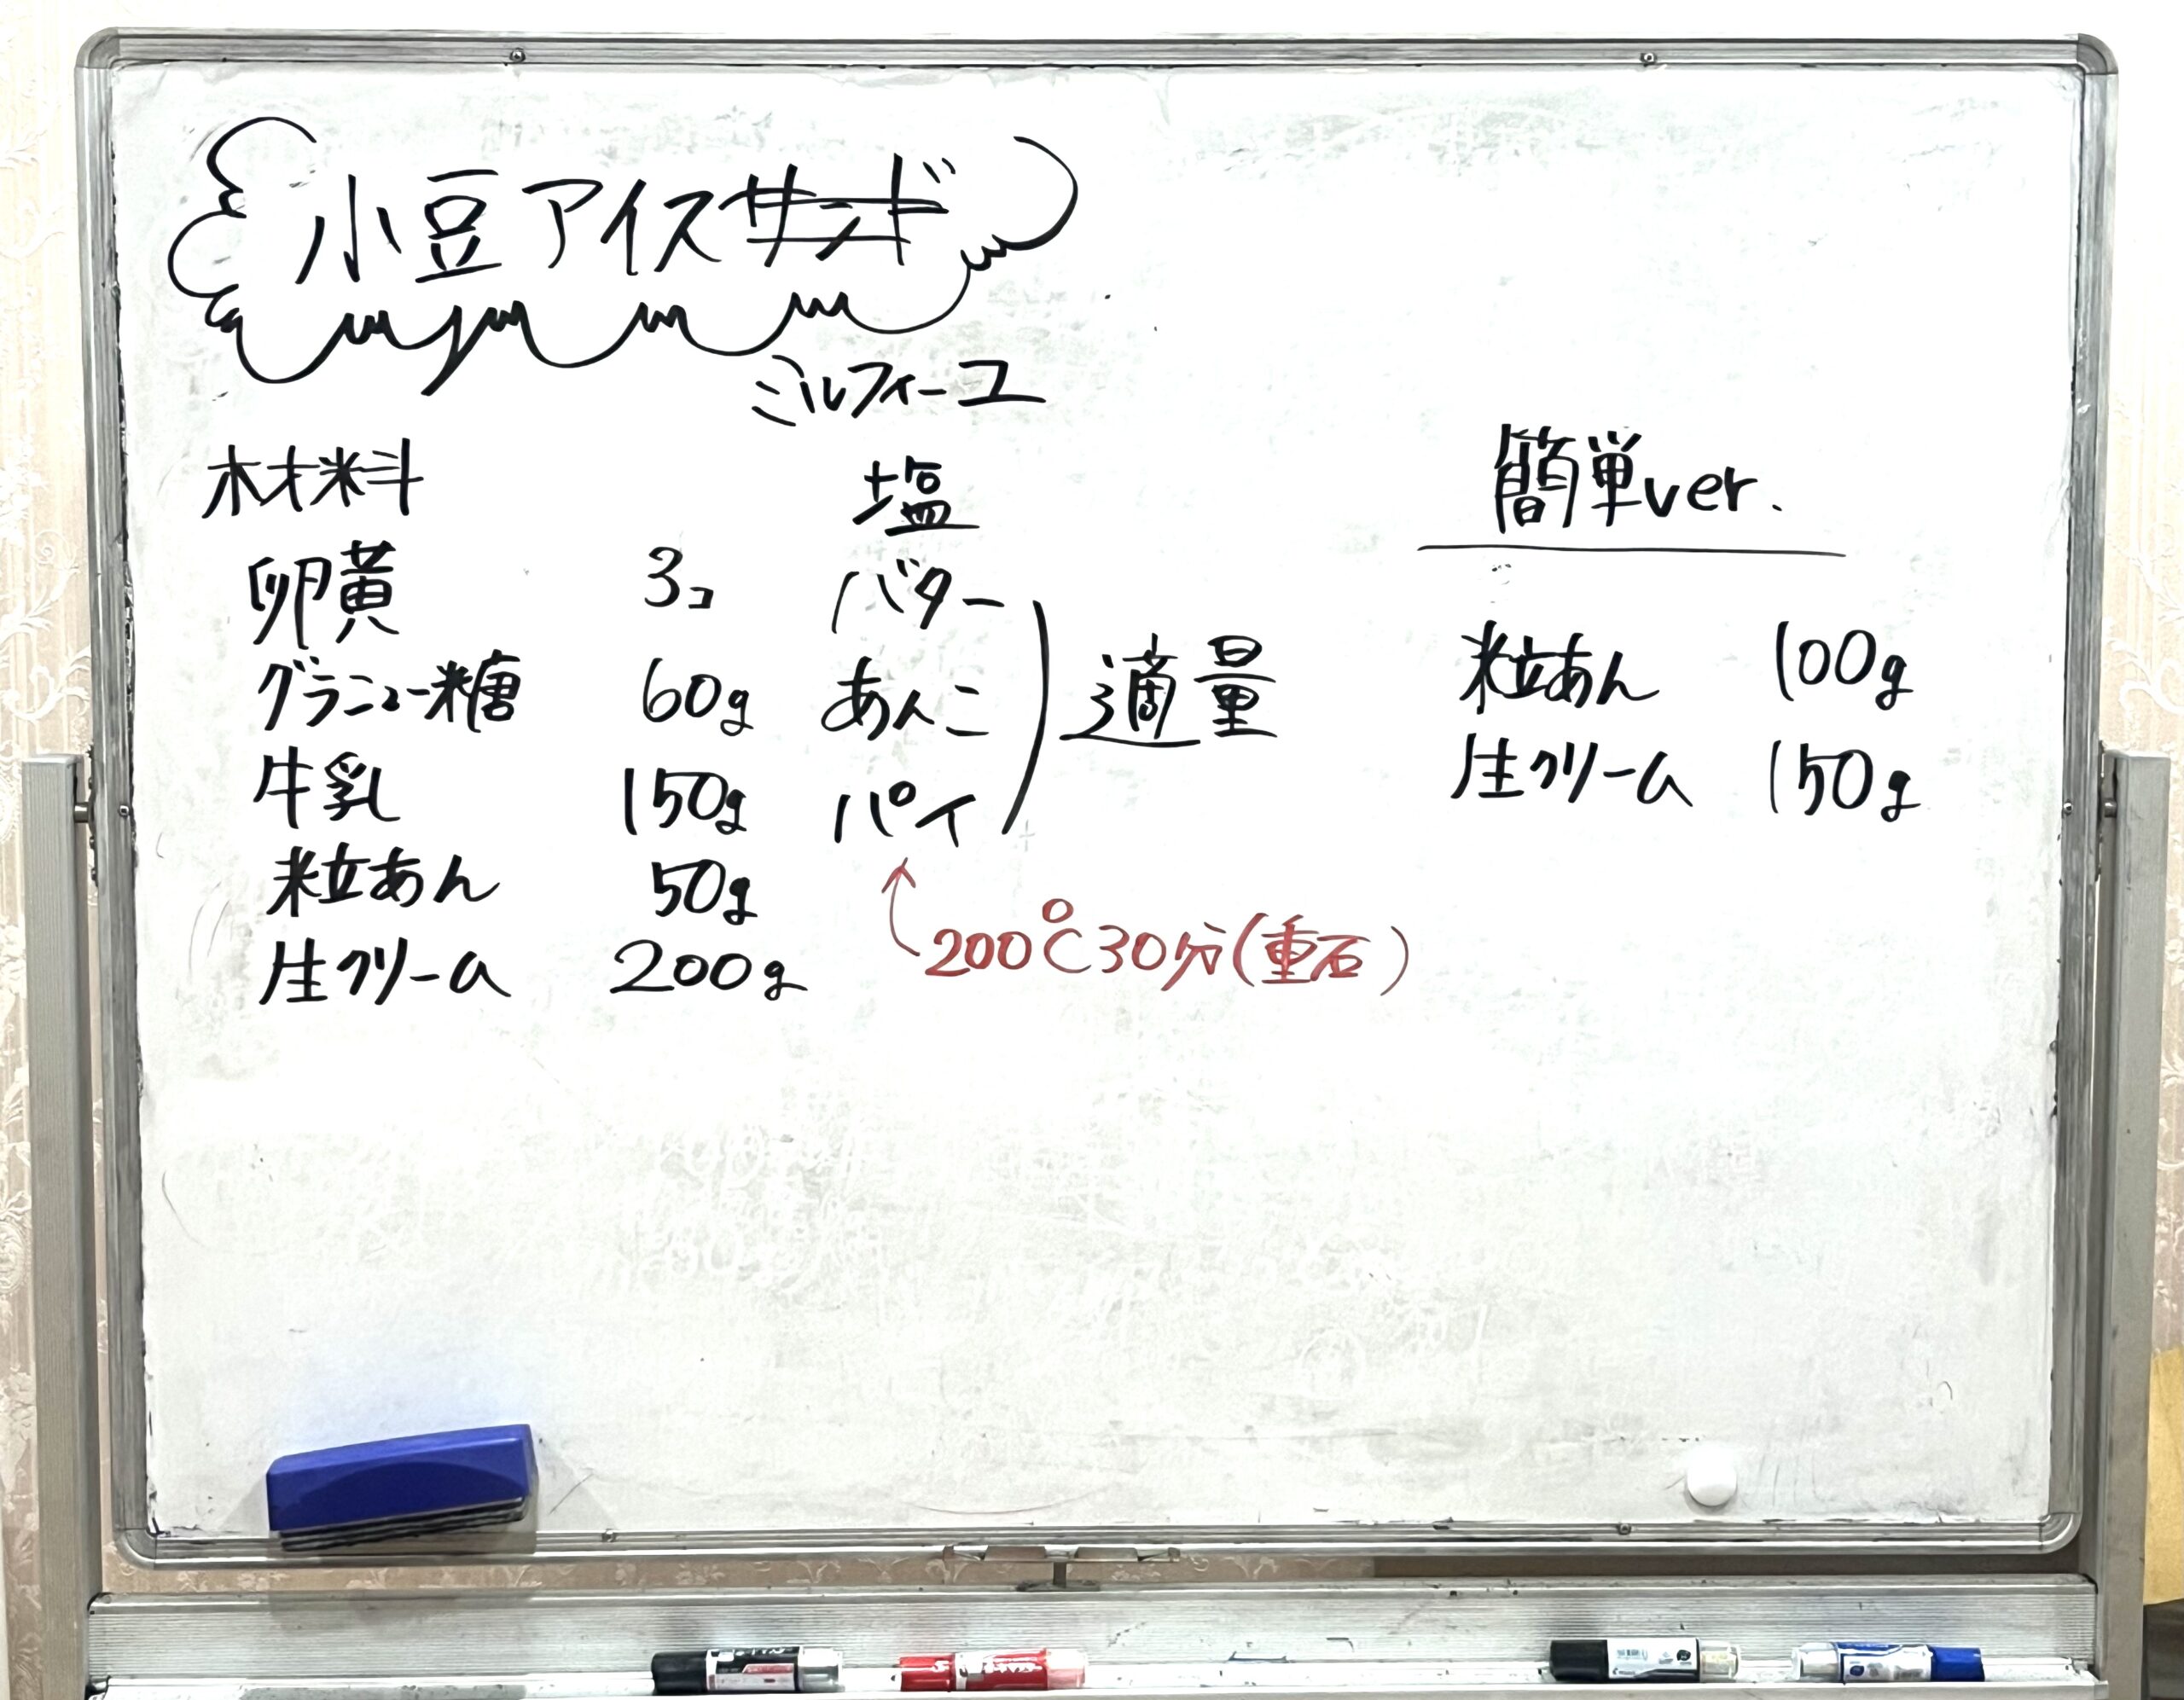 小豆アイスサンド
ミルフィーユ
材料
卵黄 3コ
グラニュー糖 60g
牛乳 150g
粒あん 50g
生クリーム 200g
塩
バター
あんこ
パイ
適量
200℃30分(重石)
簡単ver.
粒あん 100g
生クリーム 150g